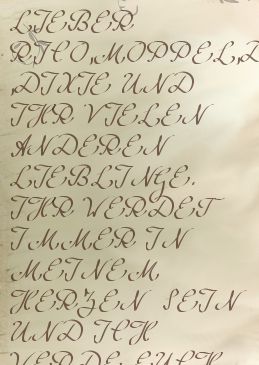 LIEBER
RICO,MOPPEL,D
,DIXIE UND
IHR VIELEN
ANDEREN
LIEBLINGE.
IHR WERDET
IMMER IN
MEINEM
HERZEN SEIN
UND ICH
WERDE EUCH